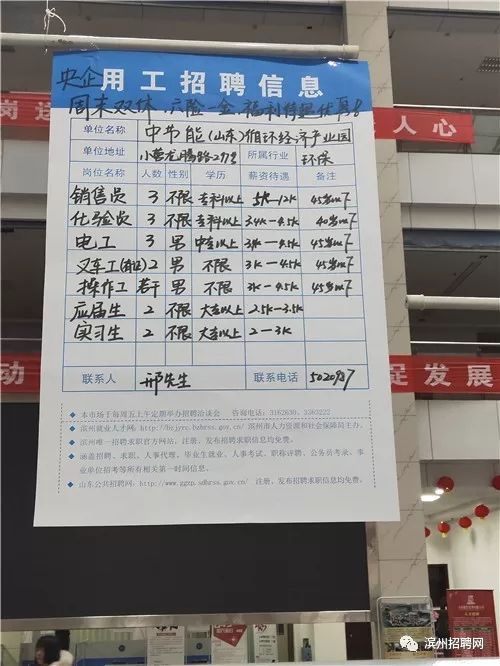 央企用工招聘信息
周末双休 六险一金 福利待遇优厚!
岗
人心
单位名称 中节能(山东)循环经济产业园
单位地址 小营龙腾路27号 所属行业 环保
岗位名称 人数 性别 学历 薪资待遇 备注
销售员 3 不限 专科以上 5K-12K 45岁以下
化验员 3 不限 专科以上 3.4K-4.5K 40岁以下
电工 3 男 中专以上 3.4K-4.5K 45岁以下
叉车工 2 男 不限 3K-4.5K 45岁以下
操作工 若干 男 不限 3K-4.5K 45岁以下
应届生 2 不限 大专以上 2.5K-3.5K
实习生 2 不限 大专以上 2-3K
动
促发展
联系人 邢先生 联系电话
本市场于每周五上午定期举办招聘洽谈会 咨询电话:3162630、3363222
滨州就业人才网:http://bzjyrc.bzhrss.gov.cn/ 滨州市人力资源和社会保障局主办。
滨州唯一招聘求职官方网站,注册、发布招聘求职信息均免费。
涵盖招聘、求职、人事代理、毕业生就业、人事考试、职称评聘、公务员考录、事
业单位招考等所有相关第一时间信息。
山东公共招聘网:http://www.ggzp.sdhrss.gov.cn/ 注册、发布招聘求职信息均免费。
滨州招聘网